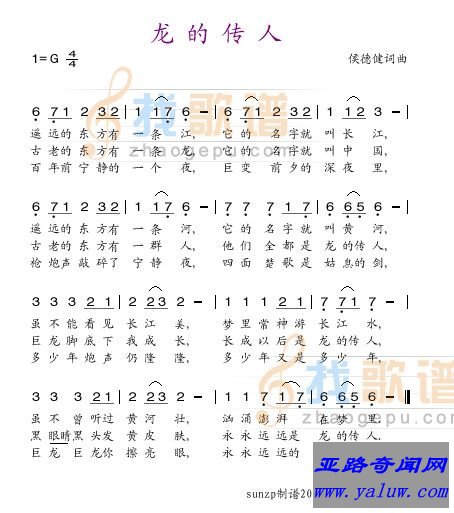 龙的传人
1=G 4/4 侯德健词曲
6 7 1 2 3 2 | 1 1 7 6 - | 6 7 1 2 3 2 | 1 1 2 3 - |
遥远的东方有一条江，它的名字就叫长江，
古老的东方有一条龙，它的名字就叫中国，
百年前宁静的一个夜，巨变前夕的深夜里，
找歌谱
zhaogepu.com
遥远的东方有一条河，它的名字就叫黄河，
古老的东方有一群人，他们全都是龙的传人，
枪炮声敲碎了宁静夜，四面楚歌是姑息的剑，
虽不能看见长江美，梦里常神游长江水，
巨龙脚底下我成长，长成以后是龙的传人，
多少年炮声仍隆隆，多少年又是多少年，
找歌谱
zhaogepu.com
虽不曾听过黄河壮，汹涌澎湃在梦里.
黑眼睛黑头发黄皮肤，永永远远是龙的传人.
巨龙巨龙你擦亮眼，永永远远
sunzp制谱20
亚路奇闻网
www.yaluw.com